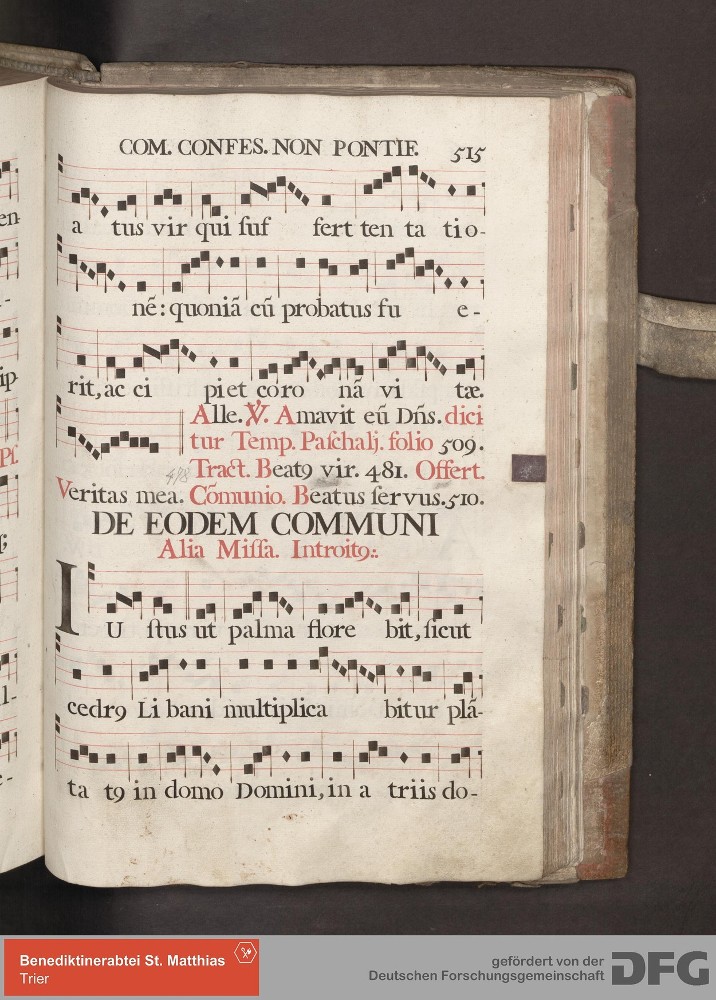 COM. CONFES. NON PONTIF. 515
a tus vir qui suf fert ten ta tio-
nẽ: quoniã cũ probatus fu e-
rit, ac ci piet coro nã vi tæ.
Alle. ℣. Amavit eũ Dñs. dici
tur Temp. Paſchalj. folio 509.
478 Tract. Beatꝰ vir. 481. Offert.
Veritas mea. Cõmunio. Beatus ſervus. 510.
DE EODEM COMMUNI
Alia Miſſa. Introitꝰ.
IU ſtus ut palma flore bit, ſicut
cedrꝰ Li bani multiplica bitur plã-
ta tꝰ in domo Domini, in a triis do-
Benediktinerabtei St. Matthias
Trier
gefördert von der
Deutschen Forschungsgemeinschaft DFG